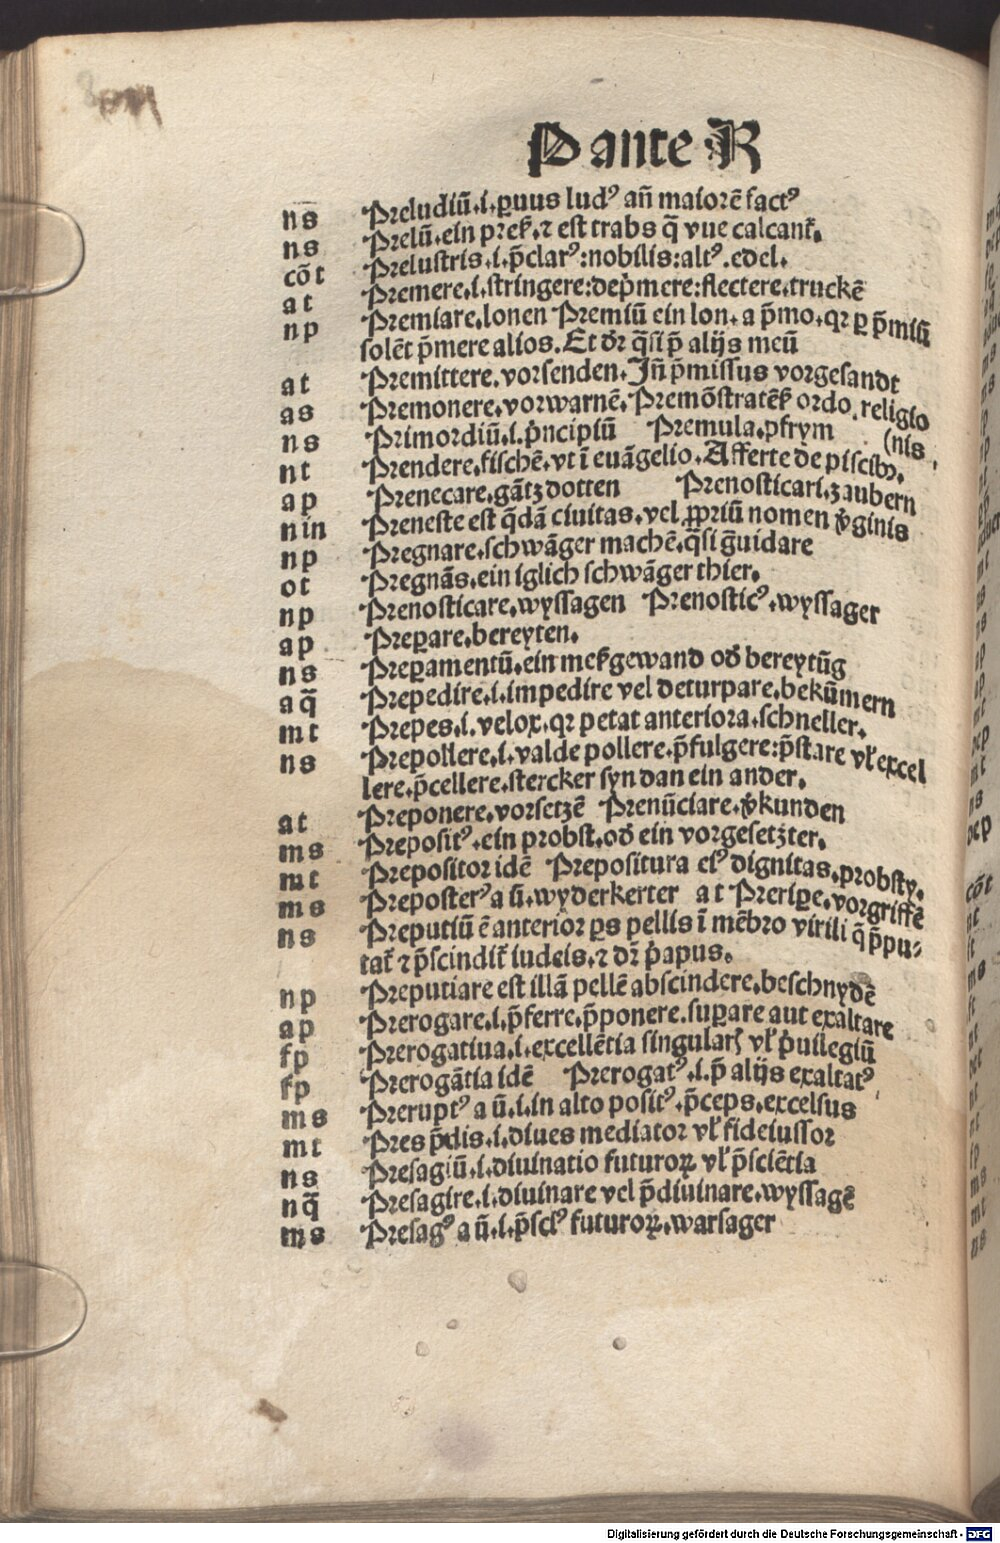 P ante R
ns Preludiū.i.ꝑuus ludꝰ añ maiorē factꝰ
ns Prelū.ein preß.⁊ est trabs q̄ vue calcant᷑.
cōt Prelustris.i.p̄clarꝰ:nobilis:altꝰ.edel.
at Premere.i.stringere:dep̄mere:flectere.truckē
np Premiare.lonen Premiū ein lon.a p̄mo.qꝛ ꝑ p̄miū
solēt p̄mere alios.Et dr̄ q̄si p̄ alijs meū
at Premittere.vorsenden.Iñ p̄missus vorgesandt
as Premonere.vorwarnē.Premōstratēß ordo.religio
ns Primordiū.i.pͥncipiū Premula.pfrym (nis
nt Prendere.fischē.vt ī euāgelio.Afferte de piscibꝰ.
ap Prenecare.gātz dotten Prenosticari.zaubern
nin Preneste est q̄dā ciuitas.vel ꝓpriū nomen ṽginis
np Pregnare.schwāger machē.q̄si g̃uidare
ot Pregnās.ein iglich schwāger thier.
np Prenosticare.wyssagen Prenosticꝰ.wyssager
ap Preꝑare.bereyten.
ns Preꝑamentū.ein meßgewand od̓ bereytūg
aq̄ Prepedire.i.impedire vel deturpare.bekūmern
mt Prepes.i.velox.qꝛ petat anteriora.schneller.
ns Prepollere.i.valde pollere.p̄fulgere:p̄stare vl̓ excel
lere.p̄cellere.stercker syn dan ein ander.
at Preponere.vorsetzē Prenūciare.ṽkunden
ms Prepositꝰ.ein probst.od̓ ein vorgesetzter.
mt Prepositor idē Prepositura eiꝰ dignitas.probsty.
ms Preposterꝰ a ū.wyderkerter at Preriꝑe.vorgriffē
ns Preputiū ē anterior ꝑs pellis ī mēbro virili q̄ p̄pu⸗
tat᷑ ⁊ p̄scindit᷑ iudeis.⁊ dr̄ pͥapus.
np Preputiare est illā pellē abscindere.beschnydē
ap Prerogare.i.p̄ferre.p̄ponere.suꝑare aut exaltare
fp Prerogatiua.i.excellētia singularꝭ vl̓ pͥuilegiū
fp Prerogātia idē Prerogatꝰ.i.p̄ alijs exaltatꝰ
ms Preruptꝰ a ū.i.in alto positꝰ.p̄ceps.excelsus
mt Pres p̄dis.i.diues mediator vl̓ fideiussor
ns Presagiū.i.diuinatio futuroꝝ vl̓ p̄sciētia
nq̄ Presagire.i.diuinare vel p̄diuinare.wyssagē
ms Presagꝰ a ū.i.p̄sciꝰ futuroꝝ.warsager
Digitalisierung gefördert durch die Deutsche Forschungsgemeinschaft - DFG